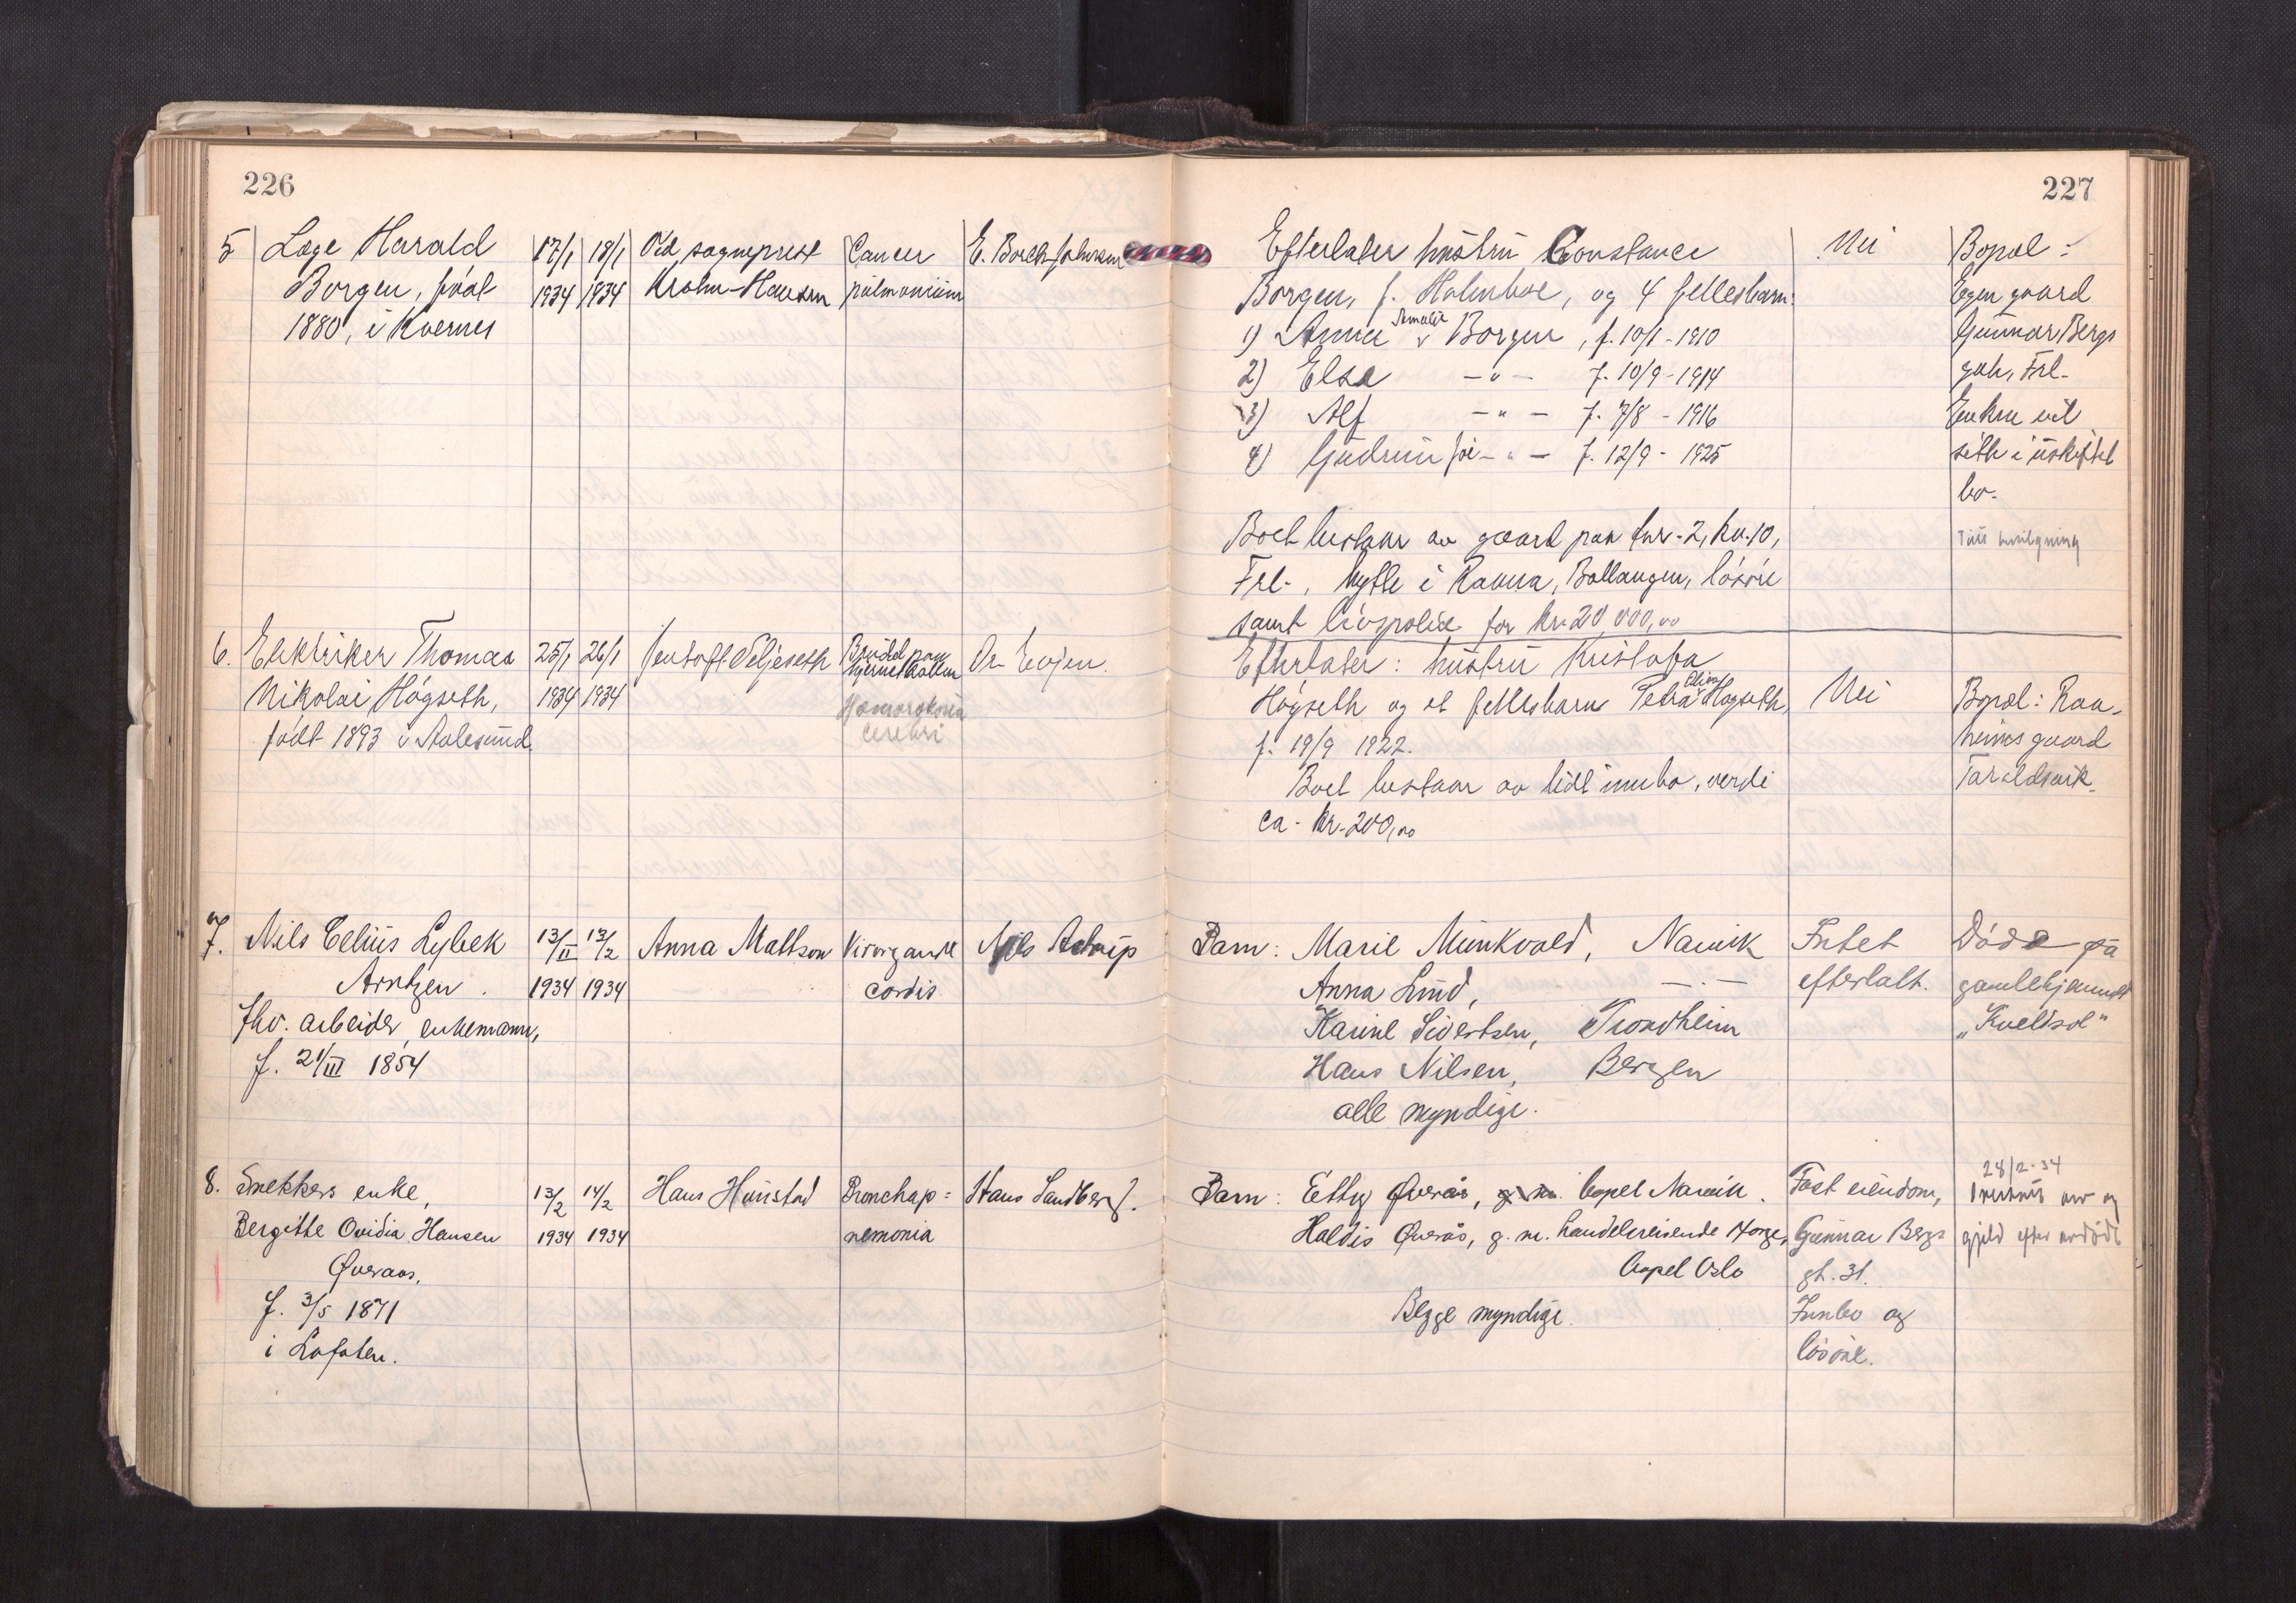 226
5 Læge Harald 17/1 18/1 sogneprest Cancer E. Borch-Johnsen
Borgen, født 1934 1934 Krohn-Hansen pulmonium
1880, i Kvernes
6. Elektriker Thomas 25/1 26/1 Jentoft Veljeseth Brudd paa Dr. Evjen.
hjerneskallen
Nikolai Høgseth, 1934 1934
født 1893 i Aalesund. cerebri
7. Nils Celius Lybek 13/II 13/2 Anna Mattson Nils Astrup
Arntzen. 1934 1934 cordis
Fhv. arbeider, enkemann,
f. 21/III 1854
8. Snekkers enke, 13/2 14/2 Hans Hunstad Bronchop= Hans Sandberg.
Bergitte Ovidia Hansen 1934 1934 nemonia
Qveraas,
f. 3/5 1871
i Lofoten.
227
Efterlater hustru Constance Nei Bopæl:
Borgen, f. Holmboe, og 4 fellesbarn: Egen gaard
Amalie
1) Anna v Borgen, f. 10/1 - 1910 Gunnar Bergs
2) Elsa -"- f. 10/9 - 1914 gate, Frl.
3) Alf -"- f. 7/8 - 1916 Enken vil
4) Gudrun -"- f. 12/9 - 1925 sitte i uskiftet
bo.
Boet bestaar av gaard paa fnr. 2, kv. 10,
Frl., hytte i Raana, Ballangen, løsøre
samt livspolice for kr. 20 000,00
Efterlater: hustru Kristofa
Høgseth og et fellesbarn Petra Høgseth, Nei Bopæl: Raa-
f. 19/9 1922. heims gaard
Boet bestaar av litt innbo, verdi Taraldsvik.
ca. kr. 200,00
Barn: Marie Munkvold, Narvik Intet Døde på
Anna Lund, —"— efterlatt. gamlehjemmet
Karine Sivertsen, Trondheim „Kveldsol"
Hans Nilsen, Bergen
alle myndige.
28/2-34
Barn: Etty Qverås, bopel Narvik. Fast eiendom,
Haldis Qverås, g. m. handelsreisende Gunnar Bergs gjeld efter avdøde
bopel Oslo gt. 31.
Begge myndige. Innbo og
løsøre.